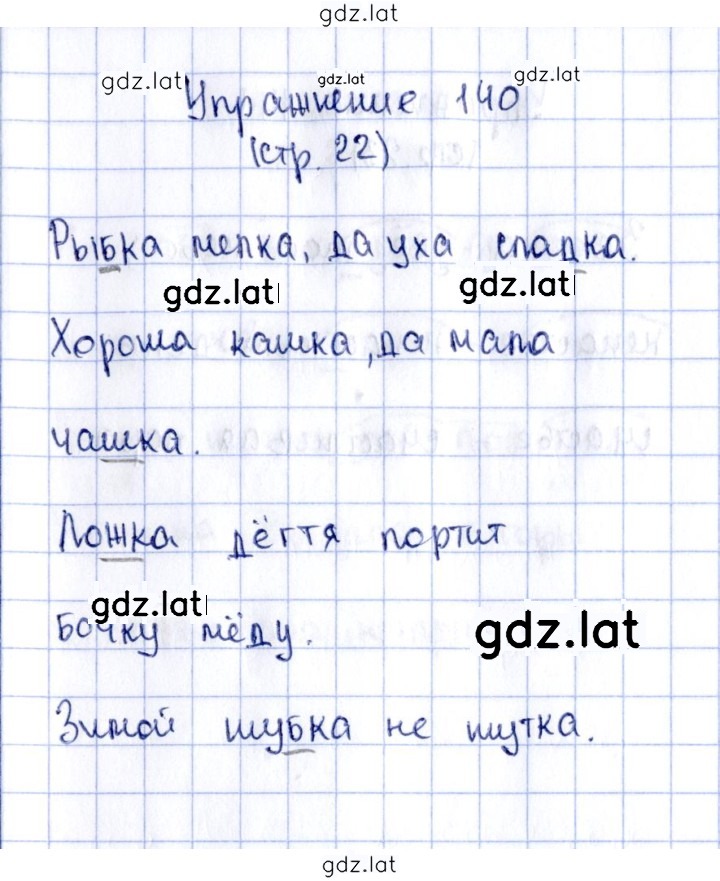 gdz.lat
gdz.lat gdz.lat gdz.lat
Упражнение 140
(стр. 22)
Рыбка мелка, да уха сладка.
gdz.lat gdz.lat
Хороша кашка, да мала
чашка.
Ложка дёгтя портит
gdz.lat gdz.lat
бочку мёду.
Зимой шубка не шутка.
gdz.lat